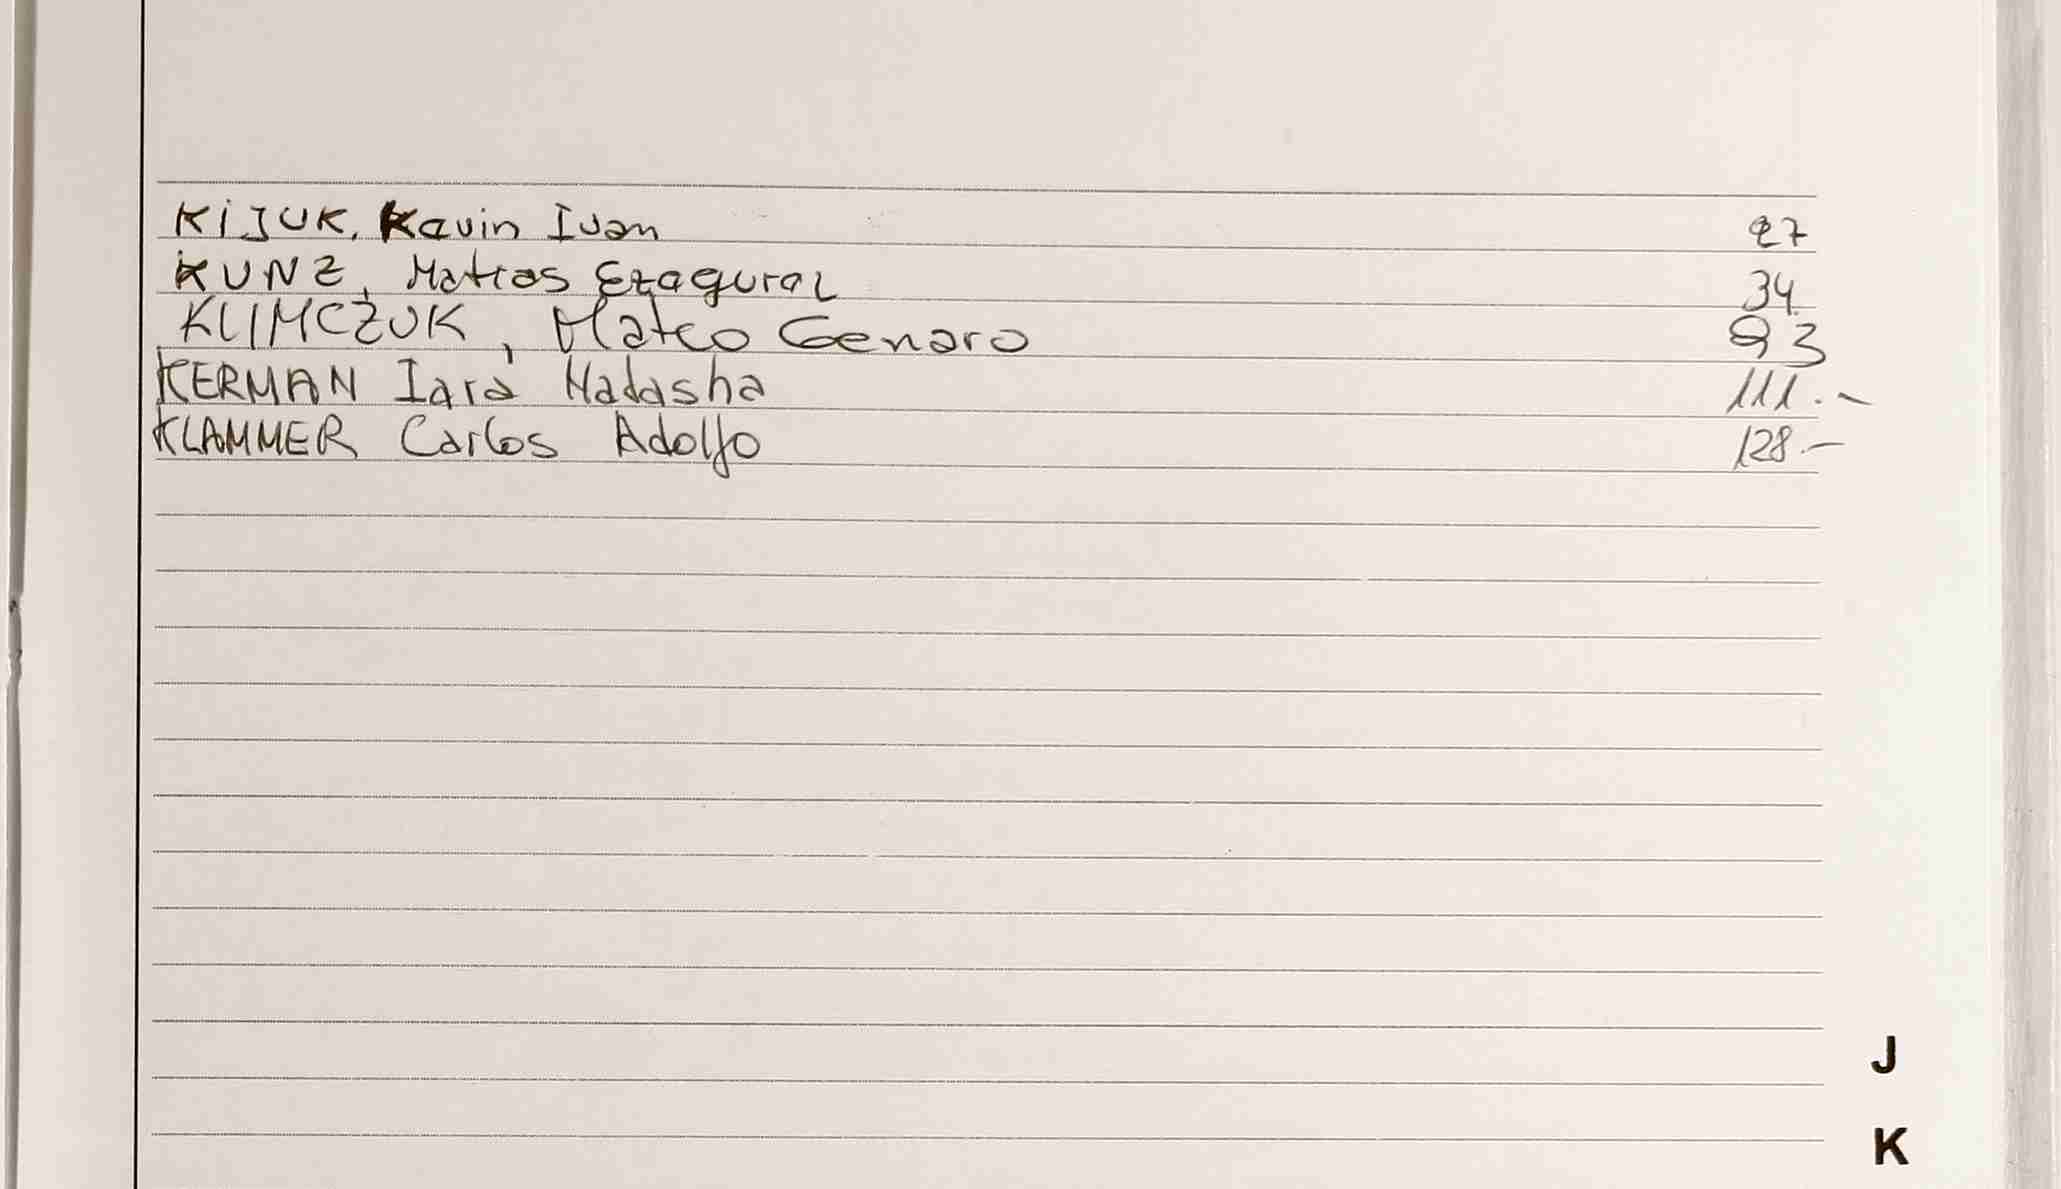 KIJUK, Kevin Ivan 27
KUNZ, Matias Ezequiel 34
KLIMCZUK, Mateo Genaro 93
KERMAN Iara Natasha 111.-
KLAMMER Carlos Adolfo 128.-
J
K